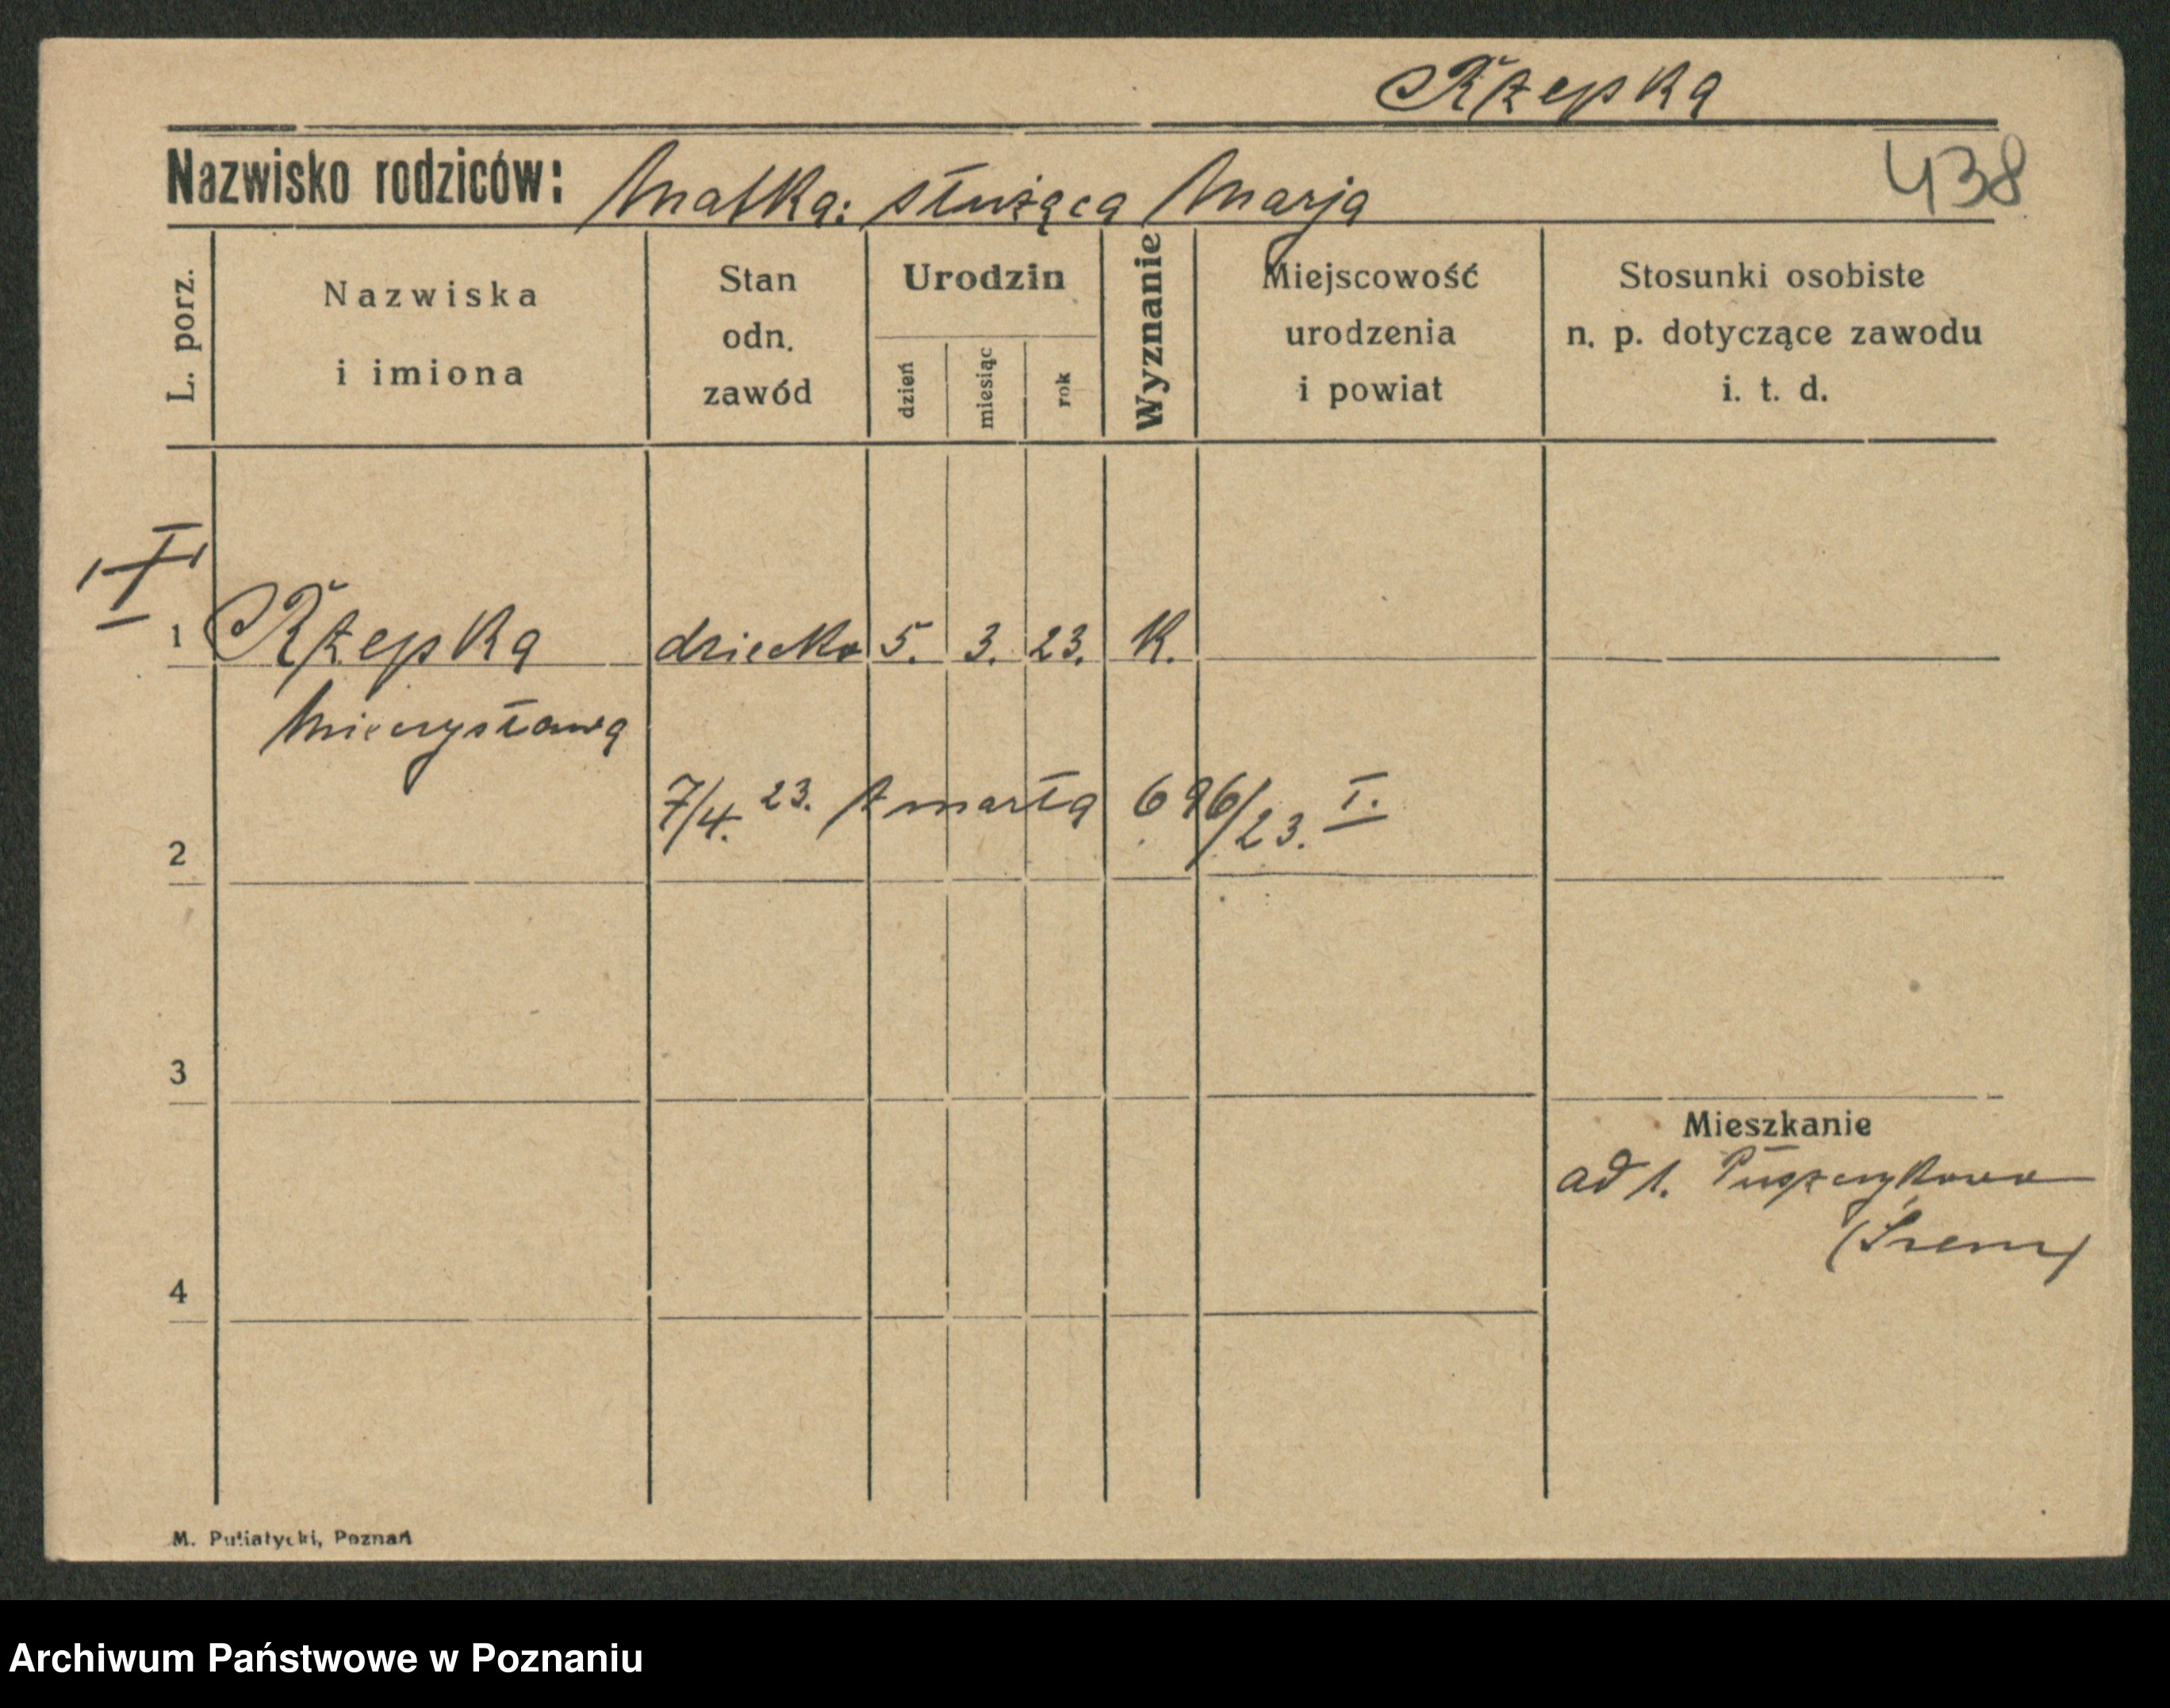 Rzepka
Nazwisko rodziców: Matka: służąca Marja
438
L. porz.
Nazwiska i imiona
Stan odn. zawód
Urodzin
dzień
miesiąc
rok
Wyznanie
Miejscowość urodzenia i powiat
Stosunki osobiste n. p. dotyczące zawodu i. t. d.
1 Rzepka dziecko 5. 3. 23. K.
Mieczysława
7/4. 23. zmarła 696/23. I.
2
3
Mieszkanie
ad 1. Puszczykowo
(Śrem)
4
M. Putiatycki, Poznań
Archiwum Państwowe w Poznaniu